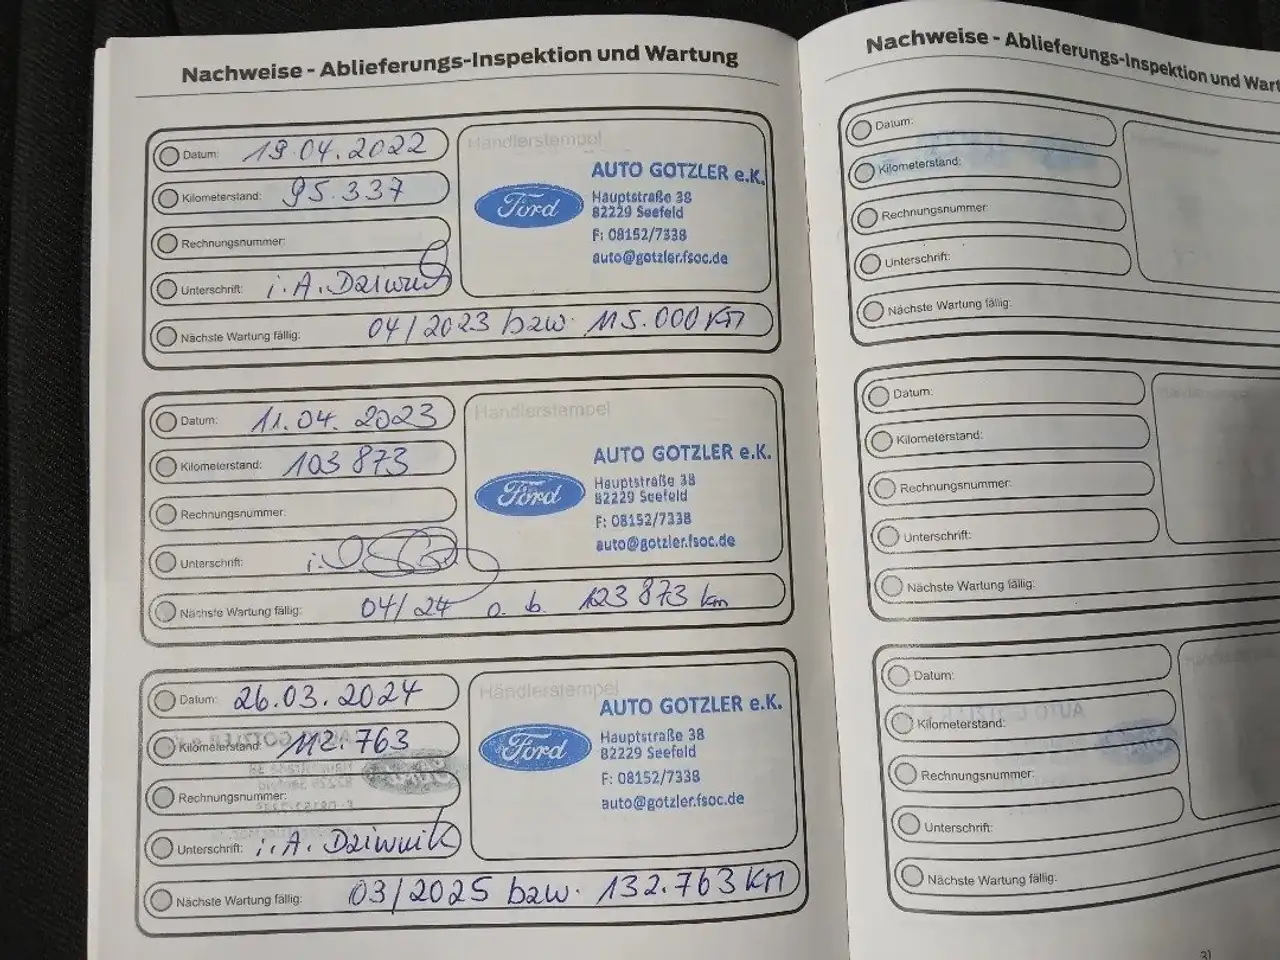 Nachweise - Ablieferungs-Inspektion und Wartung
Datum: 19.04.2022
Kilometerstand: 95.337
Rechnungsnummer:
Unterschrift: i.A. Dziwnik
Nächste Wartung fällig: 04/2023 bzw. 115.000 KM
Händlerstempel
Ford
AUTO GOTZLER e.K.
Hauptstraße 38
82229 Seefeld
F: 08152/7338
auto@gotzler.fsoc.de
Datum: 11.04.2023
Kilometerstand: 103 873
Rechnungsnummer:
Unterschrift:
Nächste Wartung fällig: 04/24 o. b. 123 873 km
Händlerstempel
Ford
AUTO GOTZLER e.K.
Hauptstraße 38
82229 Seefeld
F: 08152/7338
auto@gotzler.fsoc.de
Datum: 26.03.2024
Kilometerstand: 112.763
Rechnungsnummer:
Unterschrift: i.A. Dziwnik
Nächste Wartung fällig: 03/2025 bzw. 132.763 KM
Händlerstempel
Ford
AUTO GOTZLER e.K.
Hauptstraße 38
82229 Seefeld
F: 08152/7338
auto@gotzler.fsoc.de
Nachweise - Ablieferungs-Inspektion und Wart
Datum:
Kilometerstand:
Rechnungsnummer:
Unterschrift:
Nächste Wartung fällig:
Datum:
Kilometerstand:
Rechnungsnummer:
Unterschrift:
Nächste Wartung fällig:
Datum:
Kilometerstand:
Rechnungsnummer:
Unterschrift:
Nächste Wartung fällig:
31